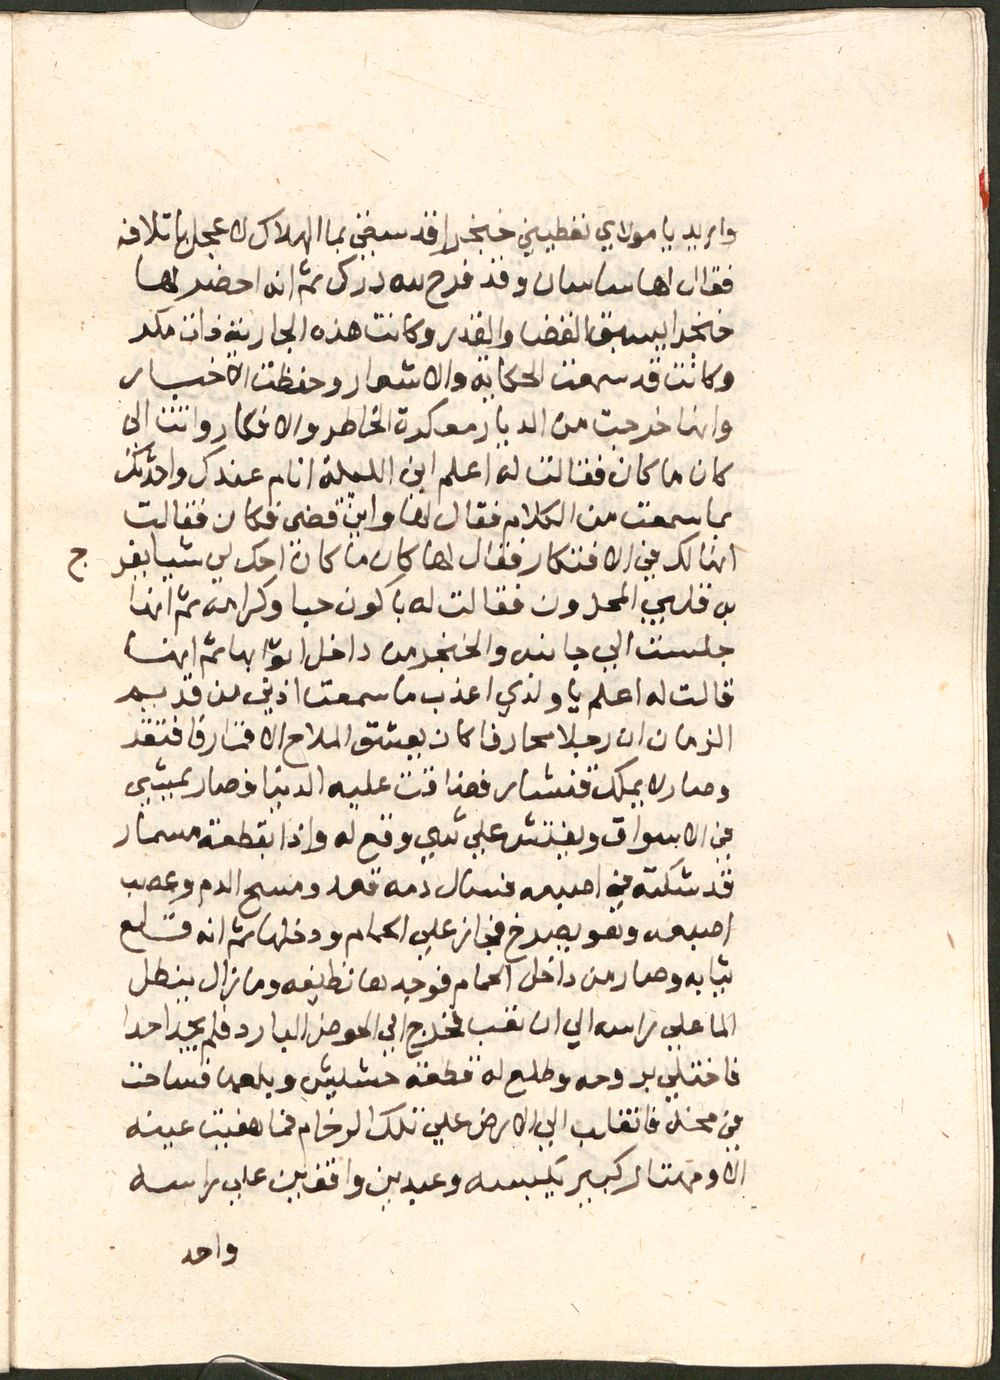 واريد يا مولاي تعطيني خنجرا فد سبقني بما الهلاك لا عجل باتلافه
فقال لها ساسان وقد فرح لله درك ثم انه احضر لها
خنجرا ليسبق القضا والقدر وكانت هذه الجارية ذات مكر
وكانت قد سمعت الحكاية والاشعار وحفظت الاخبار
وانها خرجت من الديار معكرة الخاطر والافكار واتت الى
كان ما كان فقالت له اعلم اني الليلة انام عندك واحدثك
بما سمعت من الكلام فقال لها واين قضي فكان فقالت
انها لك في الافتكار فقال لها كان ما كان احك لي شيا يفر ج
به قلبي المحزون فقالت له يا كون حبا وكرامة ثم انها
جلست الي جانبه والخنجر من داخل اثوابها ثم انها
قالت له اعلم يا ولدي اعذب ما سمعت اذني من قديم
الزمان ان رجلا محارفا كان يعشق الملاح الاقمار فافتقر
وصار لا يملك قنشار فضاقت عليه الدنيا وصار يمشي
في الاسواق ويفتش علي شي وقع له واذا بقطعة مسمار
قد شكته في اصبعه فسال دمه قعد ومسح الدم وعصب
اصبعه وهو يصرخ فجاز علي الحمام ودخلها ثم انه قلع
ثيابه وصار من داخل الحمام فوجدها نظيفه وما زال ينطل
الما علي راسه الي ان تعب فخرج الي الحوض البارد فلم يجد احدا
فاختلي بروحه وطلع له قطعة حشيش وبلعها فساحت
في مخه فانقلب الي الارض علي تلك الرخام فما هفيت عينه
الا ومهتار كبير يكبسه وعبدين واقفين علي راسه
واحد